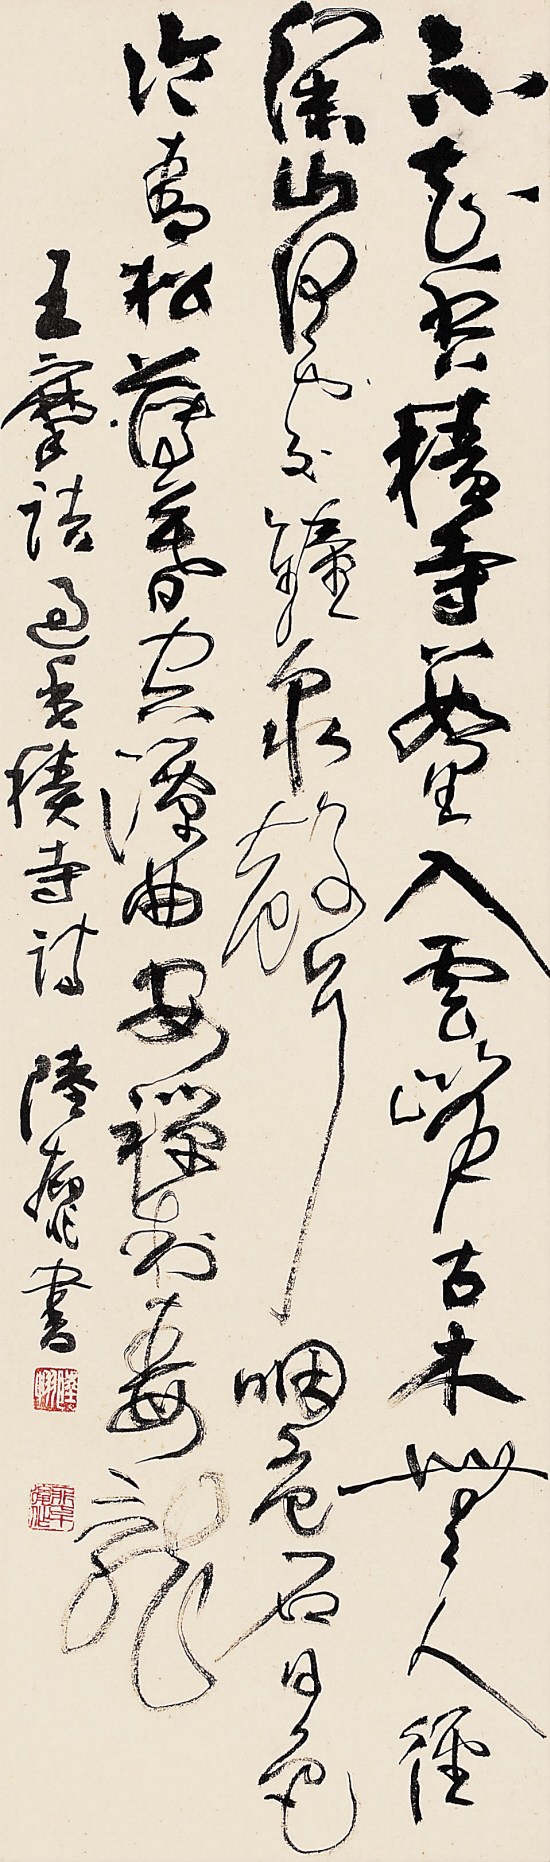 不知香積寺數里入雲峰古木無人徑
深山何處鐘泉聲咽危石日色
冷青松薄暮空潭曲安禪制毒龍
王摩詰過香積寺詩 陸書